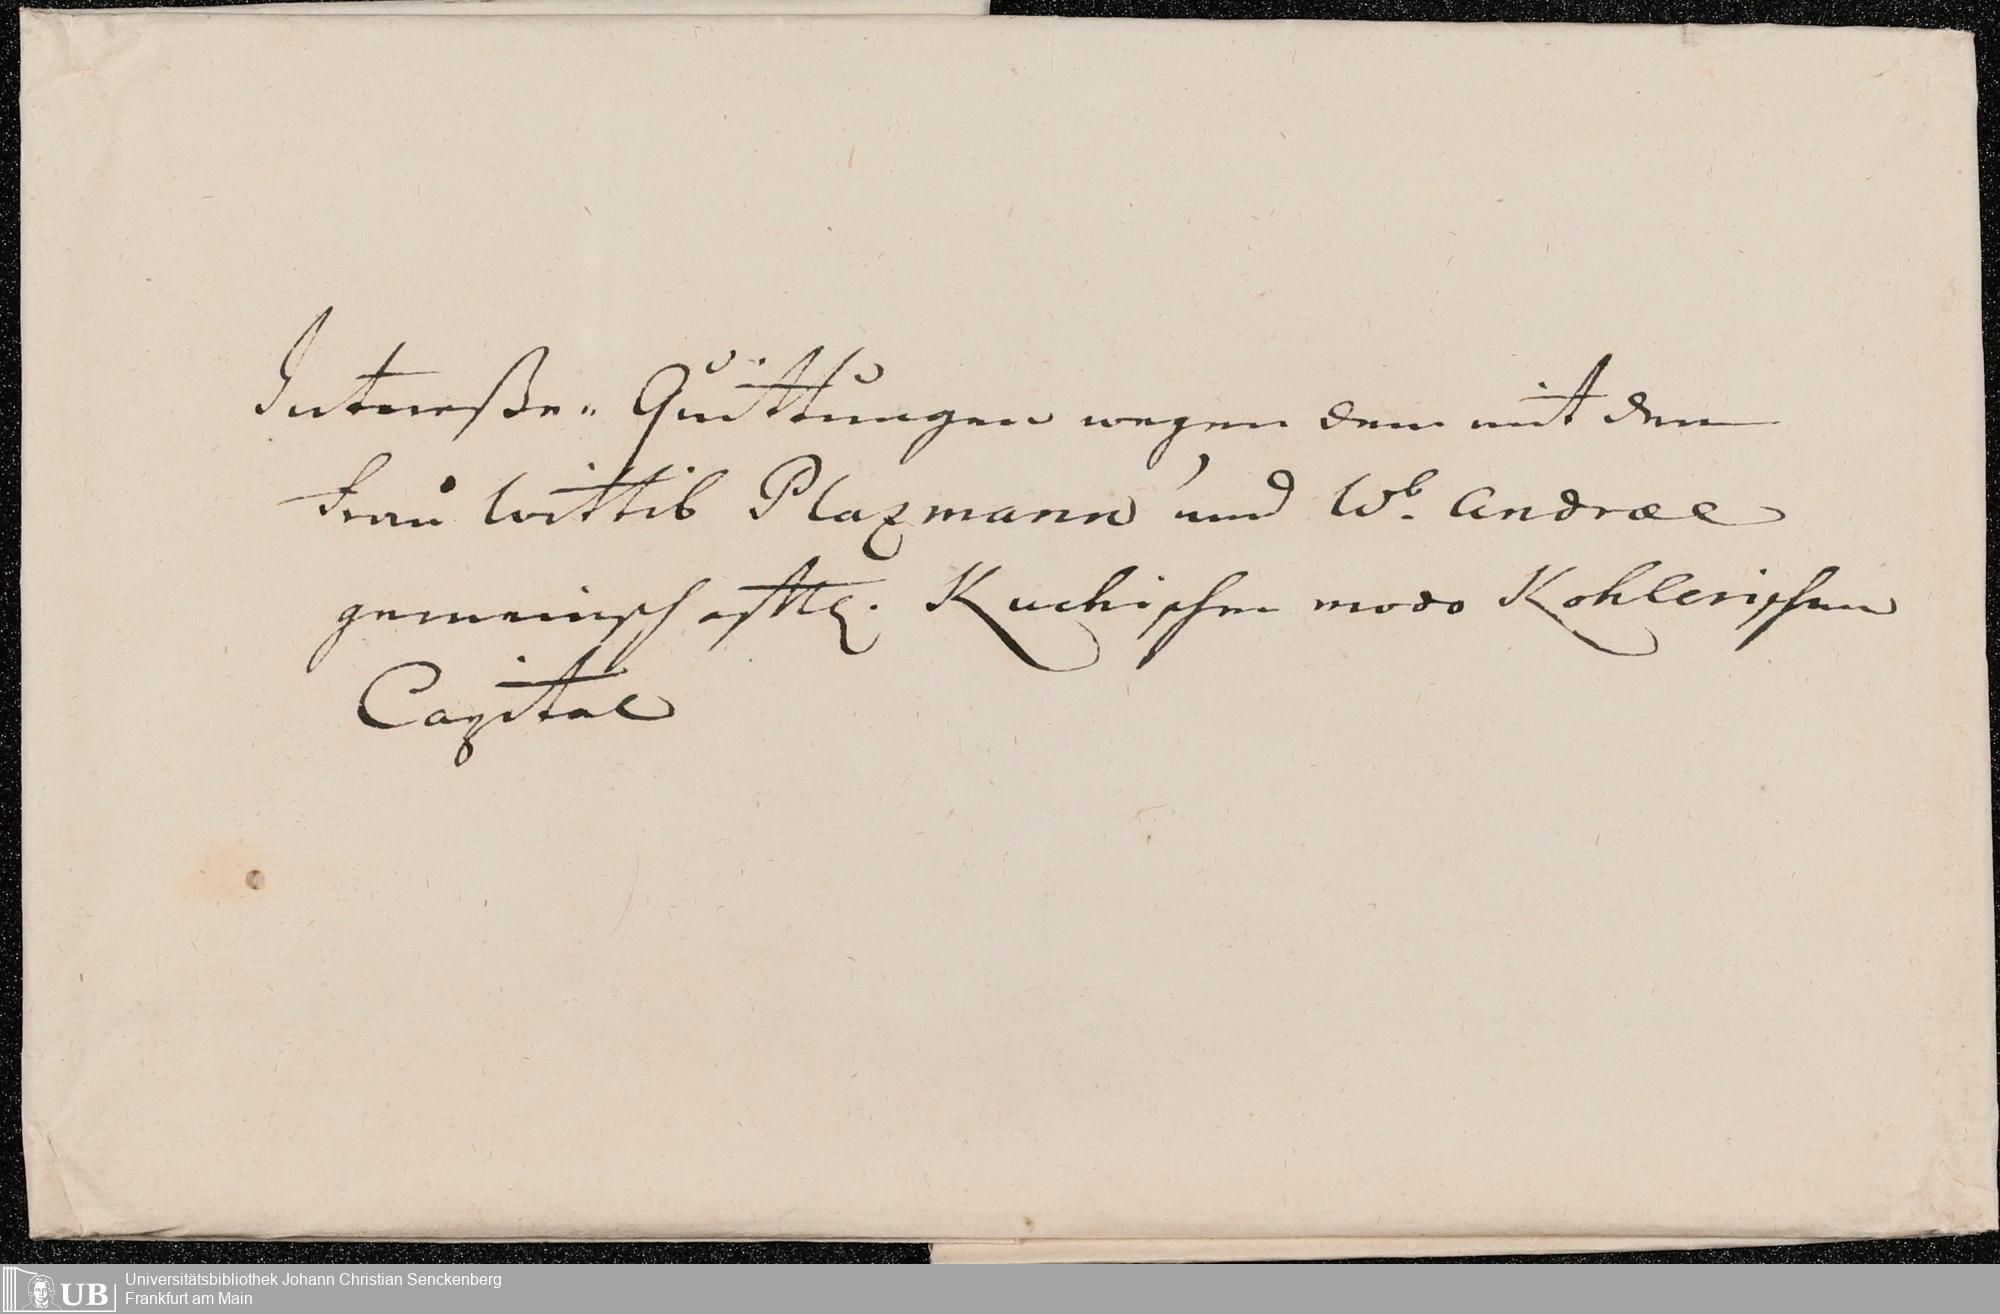 Intereße-Quittungen wegen dem mit den
Frau Wittib Plazmann und Wb. Andreae
gemeinschaftl. Kuchischen modo Kohlerischen
Capital
UB
Universitätsbibliothek Johann Christian Senckenberg
Frankfurt am Main